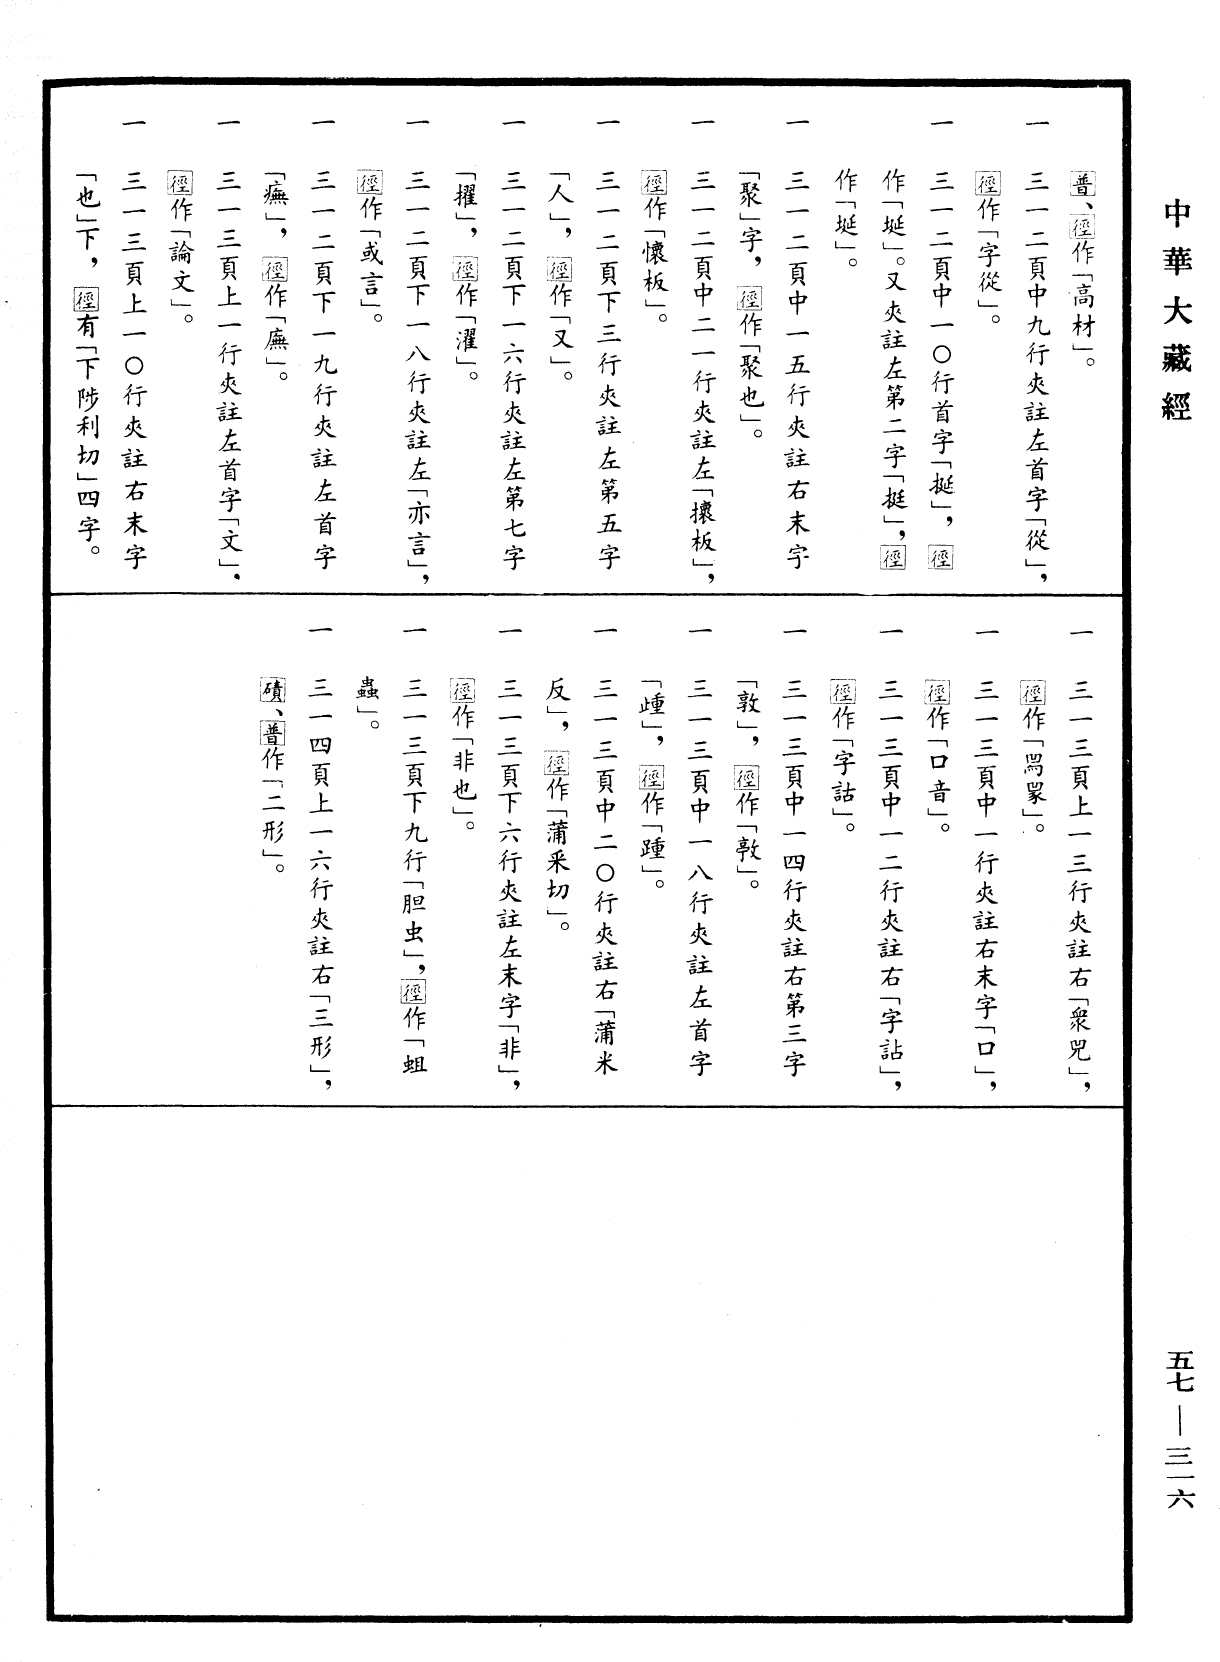 中華大藏經
普、徑作「高材」。
一 三一二頁中九行夾註左首字「從」，
徑作「字從」。
一 三一二頁中一〇行首字「挻」，徑
作「埏」。又夾註左第二字「挻」，徑
作「埏」。
一 三一二頁中一五行夾註右末字
「聚」字，徑作「聚也」。
一 三一二頁中二一行夾註左「攘板」，
徑作「懷板」。
一 三一二頁下三行夾註左第五字
「人」，徑作「又」。
一 三一二頁下一六行夾註左第七字
「擢」，徑作「濯」。
一 三一二頁下一八行夾註左「亦言」，
徑作「或言」。
一 三一二頁下一九行夾註左首字
「㾌」，徑作「廡」。
一 三一三頁上一行夾註左首字「文」，
徑作「論文」。
一 三一三頁上一〇行夾註右末字
「也」下，徑有「下陟利切」四字。
一 三一三頁上一三行夾註右「衆兕」，
徑作
一 三一三頁中一行夾註右末字「口」，
徑作「口音」。
一 三一三頁中一二行夾註右「字詀」，
徑作「字詁」。
一 三一三頁中一四行夾註右第三字
「敦」，徑作「敦」。
一 三一三頁中一八行夾註左首字
「𨁂」，徑作「踵」。
一 三一三頁中二〇行夾註右「蒲米
反」，徑作「蒲釆切」。
一 三一三頁下六行夾註左末字「非」，
徑作「非也」。
一 三一三頁下九行「胆虫」，徑作「蛆
蟲」。
一 三一四頁上一六行夾註右「三形」，
磧、普作「二形」。
五七—三一六